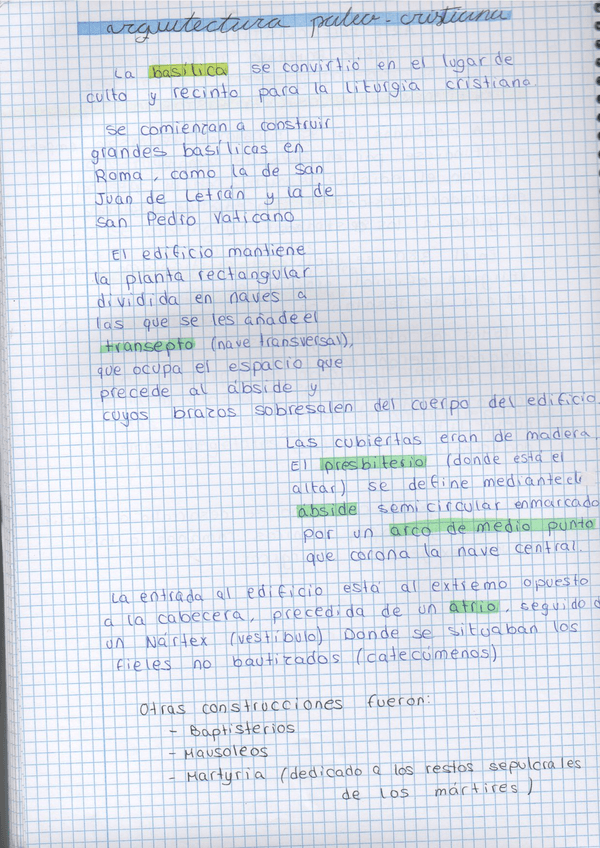 arquitectura paleo-cristiana
La basílica se convirtió en el lugar de
culto y recinto para la liturgia cristiana
se comienzan a construir
grandes basílicas en
Roma, como la de San
Juan de Letrán y la de
San Pedro Vaticano
El edificio mantiene
la planta rectangular
dividida en naves a
las que se les añade el
transepto (nave transversal),
que ocupa el espacio que
precede al ábside y
cuyos brazos sobresalen del cuerpo del edificio.
Las cubiertas eran de madera,
El presbiterio (donde está el
altar) se define mediante
ábside semicircular enmarcado
por un arco de medio punto
que corona la nave central.
La entrada al edificio está al extremo opuesto
a la cabecera, precedida de un atrio, seguido d
un Nártex (vestíbulo) Donde se situaban los
fieles no bautizados (catecúmenos)
Otras construcciones fueron:
- Baptisterios
- Mausoleos
- Martyria (dedicado a los restos sepulcrales
de los mártires)